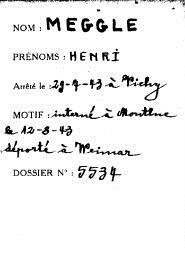 NOM : MEGGLE
PRÉNOMS : HENRI
Arrêté le : 29-4-43 à Vichy
MOTIF : interné à Montluc
le 12-8-43
déporté à Weimar
DOSSIER N° : 5534